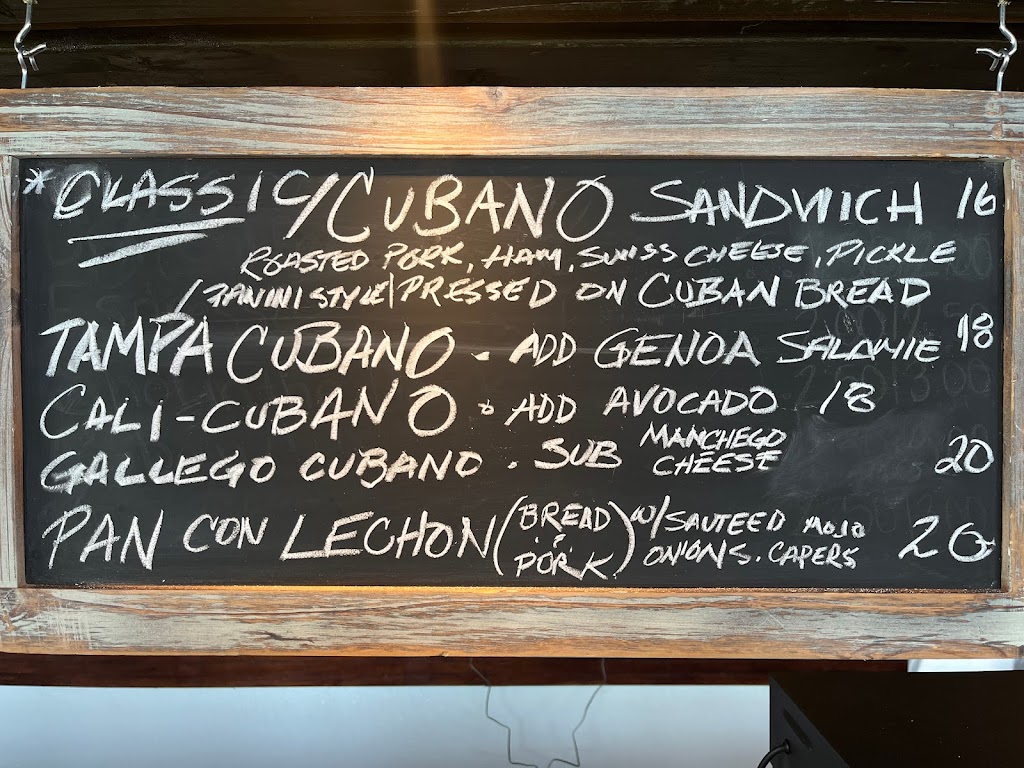 * CLASSIC/CUBANO SANDWICH 16
ROASTED PORK, HAM, SWISS CHEESE, PICKLE
/PANINI STYLE/PRESSED ON CUBAN BREAD
TAMPA CUBANO - ADD GENOA SALAMIE 18
CALI-CUBANO • ADD AVOCADO 18
GALLEGO CUBANO • SUB MANCHEGO CHEESE 20
PAN CON LECHON (BREAD & PORK) W/SAUTEED MOJO ONIONS. CAPERS 20